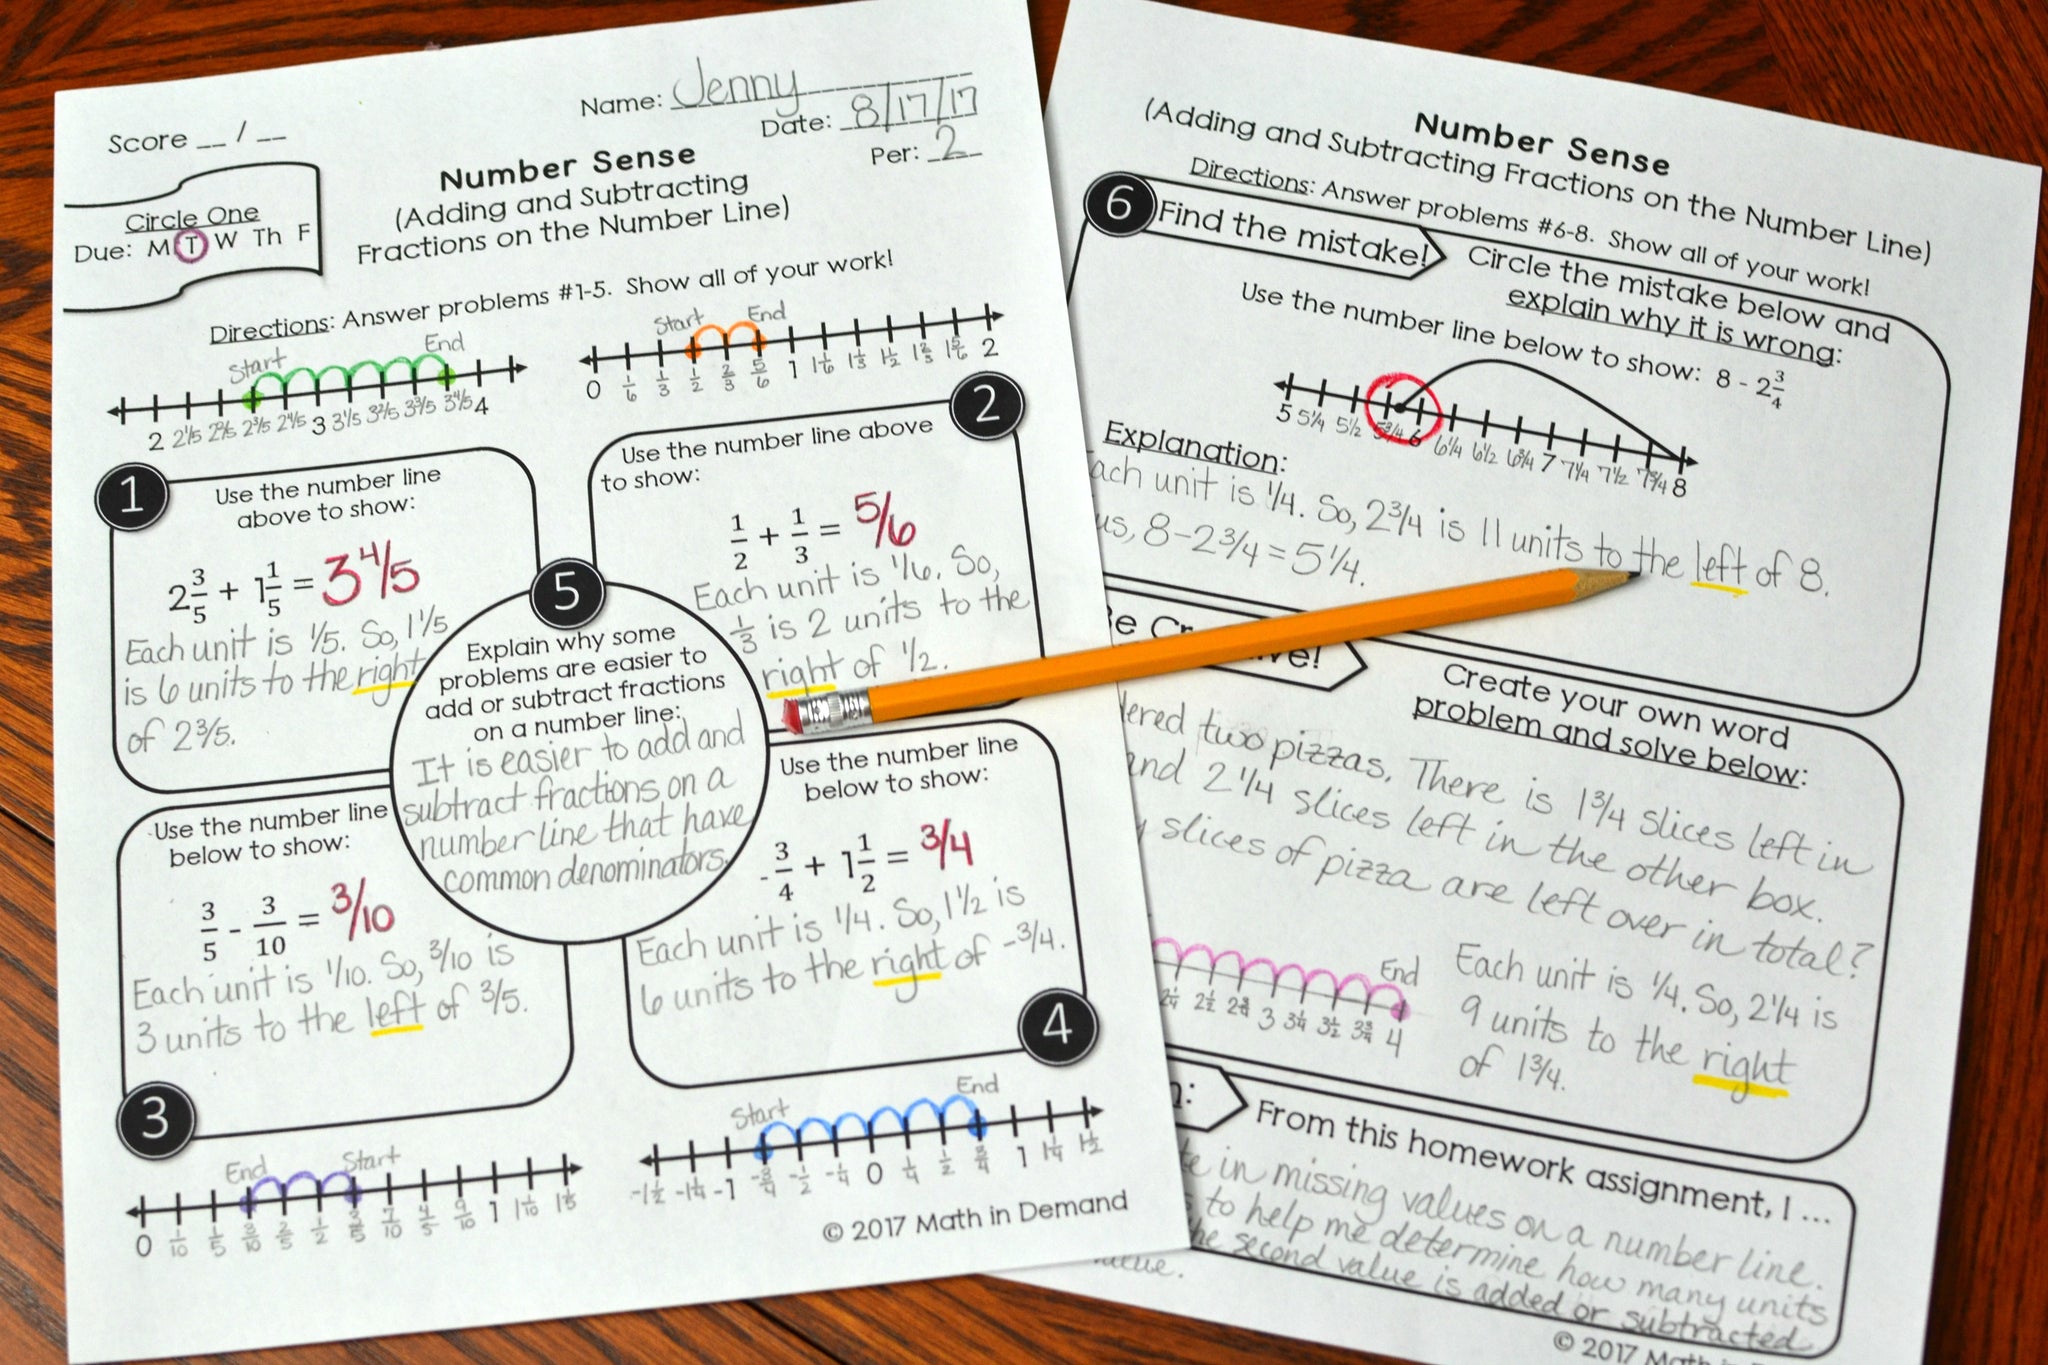 Name: Jenny
Date: 8/17/17
Per: 2
Score __ / __
Circle One
Due: M T W Th F
Number Sense
(Adding and Subtracting
Fractions on the Number Line)
Directions: Answer problems #1-5. Show all of your work!
Start End
2 2 1/5 2 2/5 2 3/5 2 4/5 3 3 1/5 3 2/5 3 3/5 3 4/5 4
Start End
0 1/6 1/3 1/2 2/3 5/6 1 1 1/6 1 1/3 1 1/2 1 2/3 1 5/6 2
1
Use the number line
above to show:
2 3/5 + 1 1/5 = 3 4/5
Each unit is 1/5. So, 1 1/5
is 6 units to the right
of 2 3/5.
2
Use the number line above
to show:
1/2 + 1/3 = 5/6
Each unit is 1/6. So,
1/3 is 2 units to the
right of 1/2.
5
Explain why some
problems are easier to
add or subtract fractions
on a number line:
It is easier to add and
subtract fractions on a
number line that have
common denominators.
3
Use the number line
below to show:
3/5 - 3/10 = 3/10
Each unit is 1/10. So, 3/10 is
3 units to the left of 3/5.
End Start
0 1/10 1/5 3/10 2/5 1/2 3/5 7/10 4/5 9/10 1 1 1/10 1 1/5
4
Use the number line
below to show:
-3/4 + 1 1/2 = 3/4
Each unit is 1/4. So, 1 1/2 is
6 units to the right of -3/4.
Start End
-1 1/2 -1 1/4 -1 -3/4 -1/2 -1/4 0 1/4 1/2 3/4 1 1 1/4 1 1/2
© 2017 Math in Demand
Number Sense
(Adding and Subtracting Fractions on the Number Line)
Directions: Answer problems #6-8. Show all of your work!
6
Find the mistake!
Circle the mistake below and
explain why it is wrong:
Use the number line below to show: 8 - 2 3/4
5 5 1/4 5 1/2 5 3/4 6 6 1/4 6 1/2 6 3/4 7 7 1/4 7 1/2 7 3/4 8
Explanation:
Each unit is 1/4. So, 2 3/4 is 11 units to the left of 8.
8 - 2 3/4 = 5 1/4.
Create your own word
problem and solve below:
two pizzas. There is 1 3/4 slices left in
and 2 1/4 slices left in the other box.
slices of pizza are left over in total?
End
2 1/4 2 1/2 2 3/4 3 3 1/4 3 1/2 3 3/4 4
Each unit is 1/4. So, 2 1/4 is
9 units to the right
of 1 3/4.
From this homework assignment, I ...
in missing values on a number line.
to help me determine how many units
the second value is added or subtracted
value.
© 2017 Math in